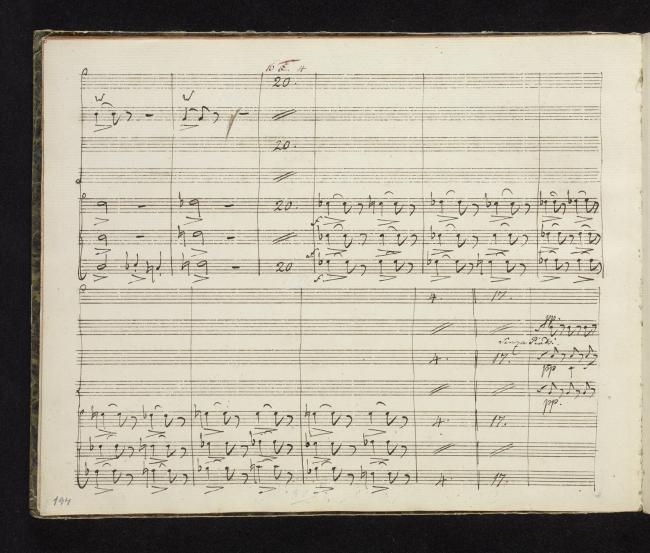 20.
20.
20.
20
4. 17.
pp.
4. 17.
pp
pp.
4. 17.
4. 17.
194